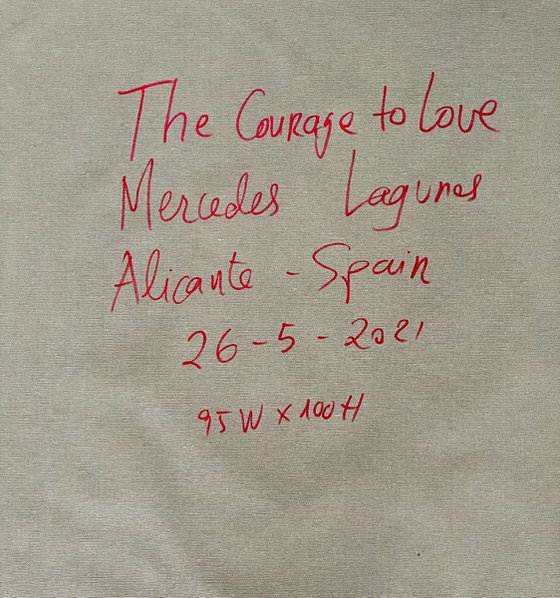 The Courage to Love
Mercedes Lagunes
Alicante - Spain
26-5-2021
95W x 100H